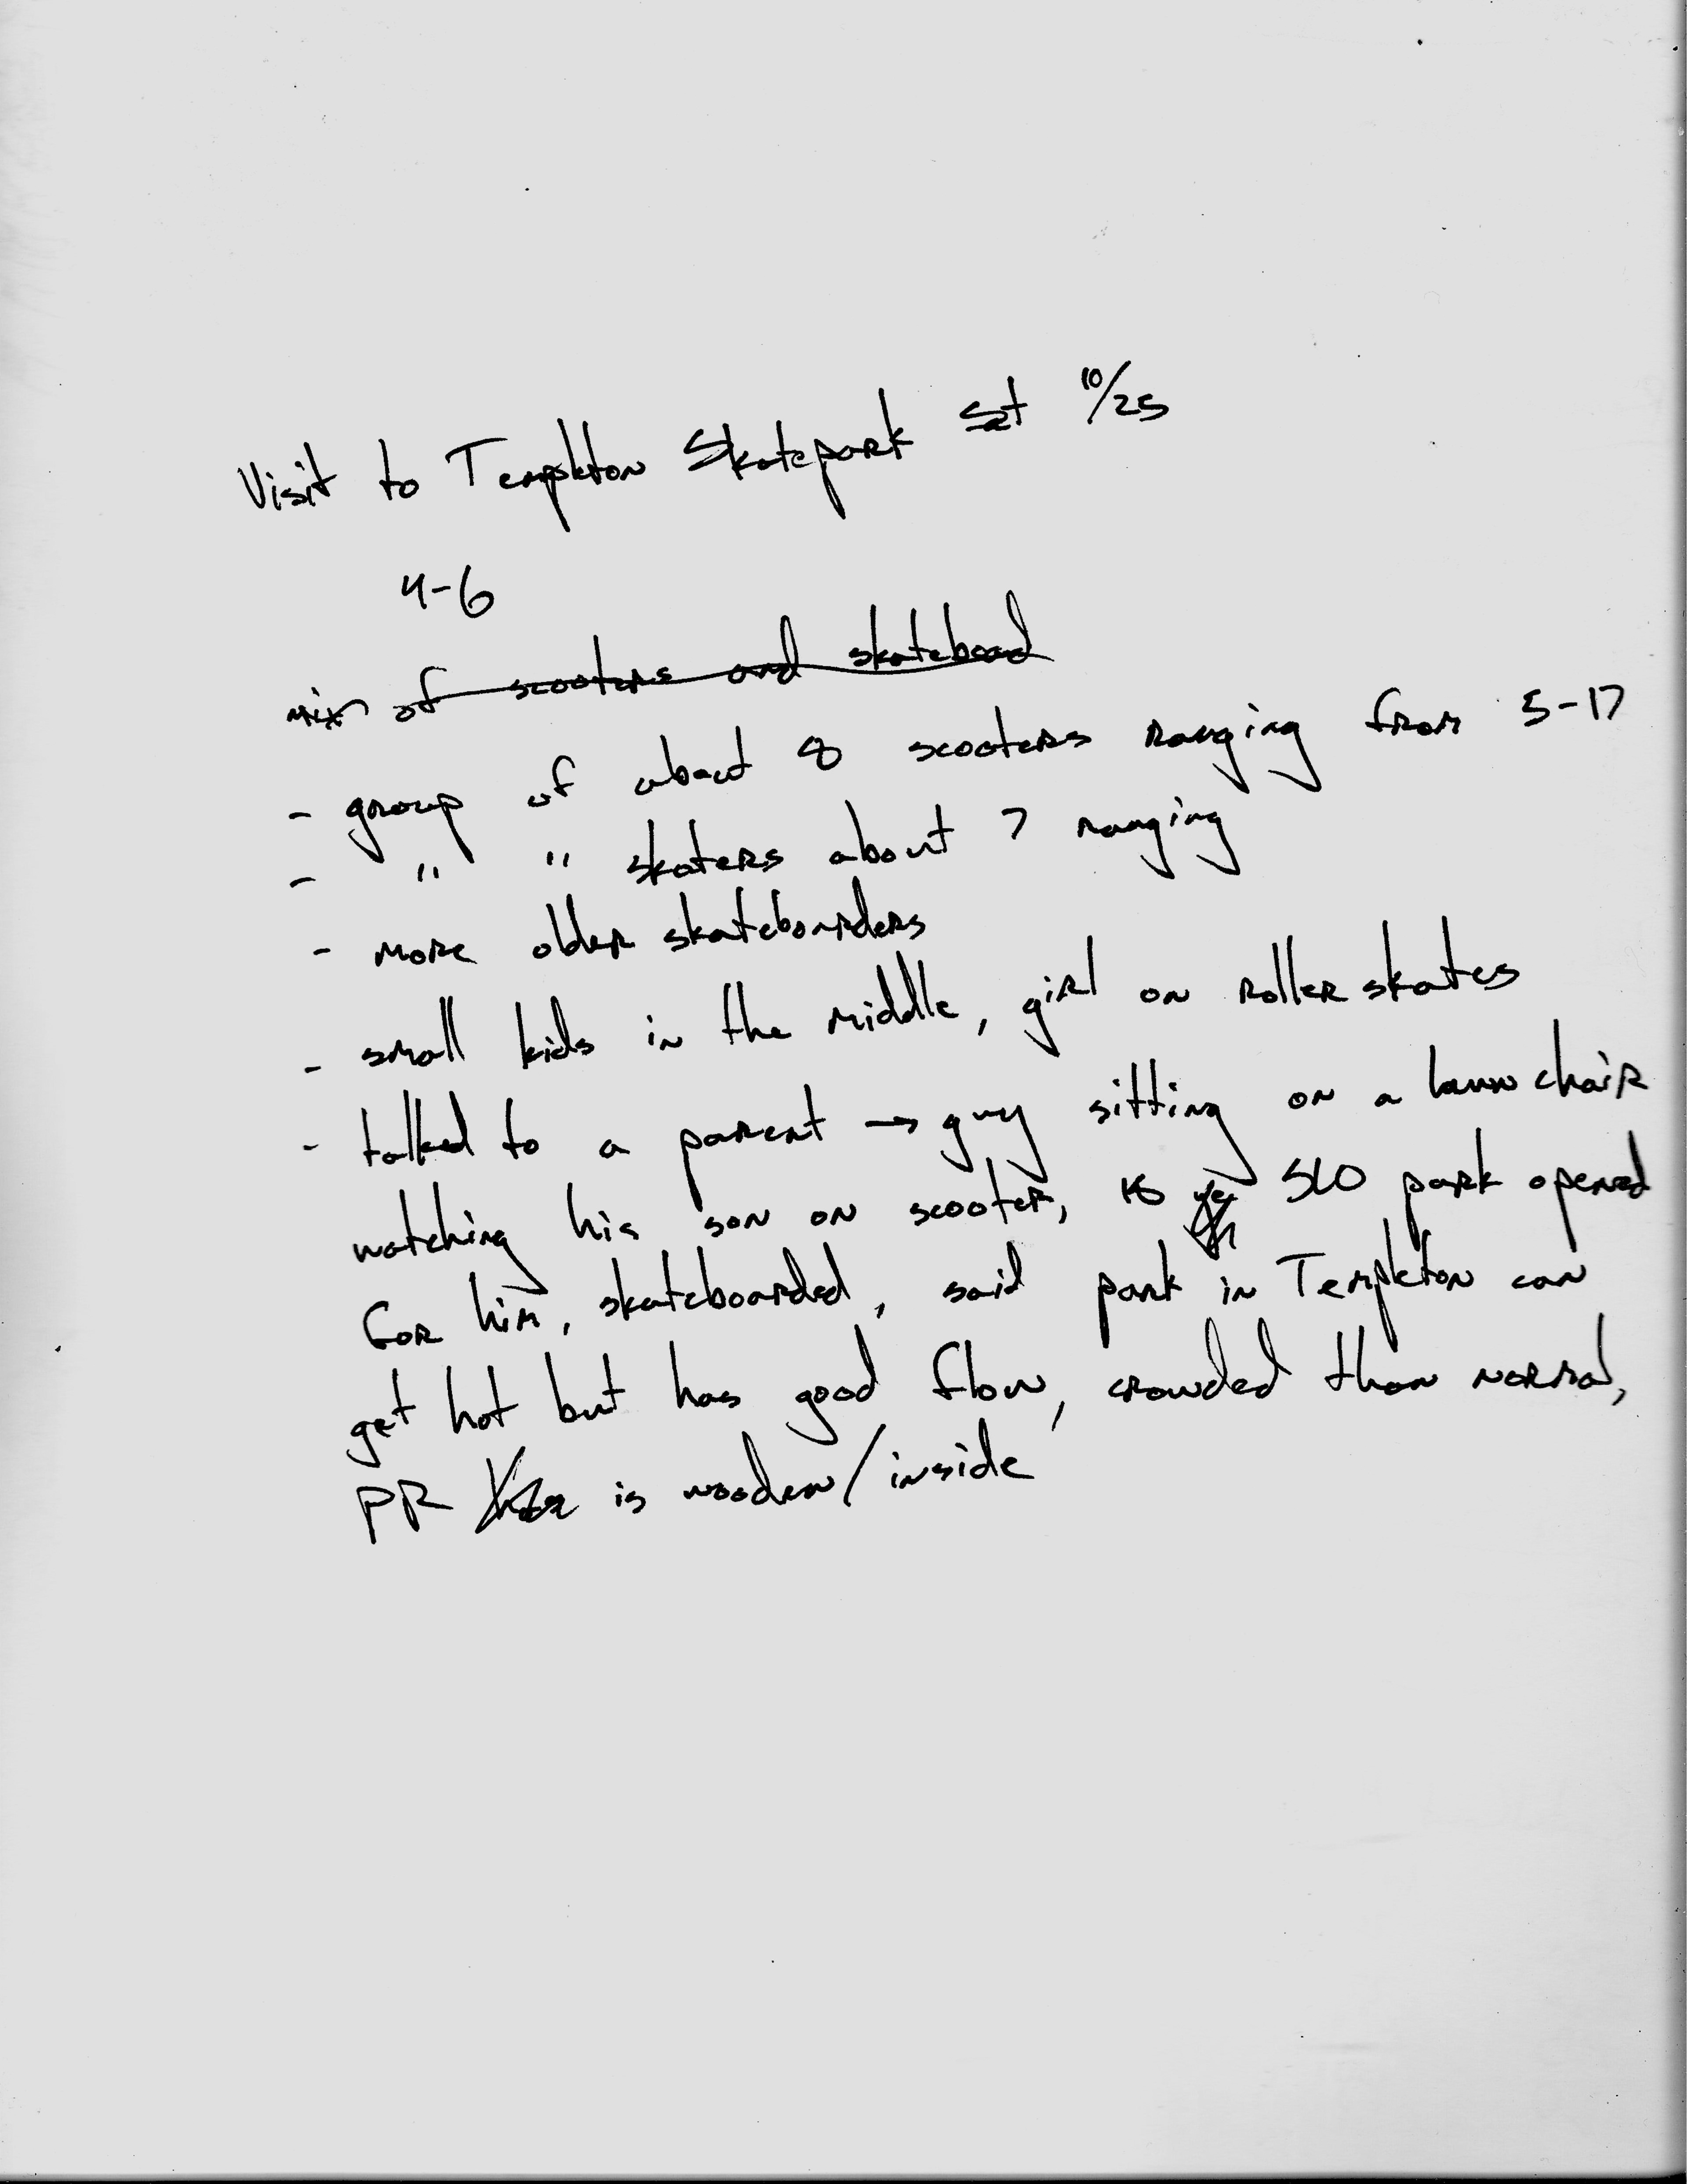 Visit to Templeton Skatepark Sat 10/25
4-6
mix of scooters and skateboard
- group of about 8 scooters ranging from 5-17
- " " skaters about 7 ranging
- more older skateboarders
- small kids in the middle, girl on roller skates
- talked to a parent → guy sitting on a lawn chair
watching his son on scooter, SLO park opened
for him, skateboarded, said park in Templeton can
get hot but has good flow, crowded than normal,
PR is wooden/inside